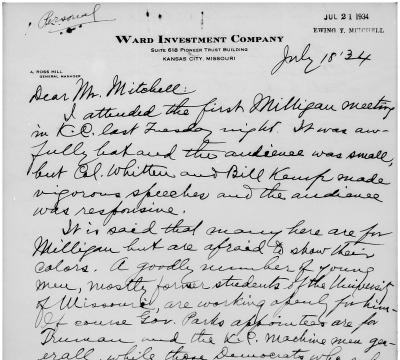 Personal
JUL 21 1934
EWING Y. MITCHELL
WARD INVESTMENT COMPANY
SUITE 618 PIONEER TRUST BUILDING
KANSAS CITY, MISSOURI
A. ROSS HILL
GENERAL MANAGER
July 18 '34
Dear Mr. Mitchell:
I attended the first Milligan meeting
in K.C. last Tuesday night. It was aw-
fully hot and the audience was small,
but Col. Whitten and Bill Kemp made
vigorous speeches and the audience
was responsive.
It is said that many here are for
Milligan but are afraid to show their
colors. A goodly number of young
men, mostly former students of the Universit
of Missouri, are working openly for him.
Of course Gov. Parks appointees are for
Truman and the K.C. machine men gen-
erally, while those Democrats who